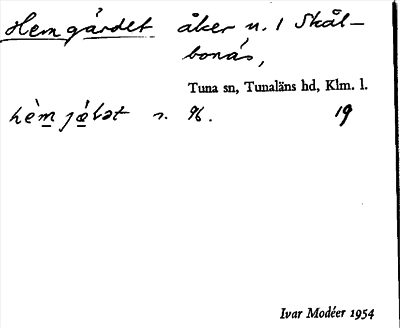 Hemgärdet åker n. 1 Skål-
bonäs,
Tuna sn, Tunaläns hd, Klm. l.
n. % . 19
Ivar Modéer 1954